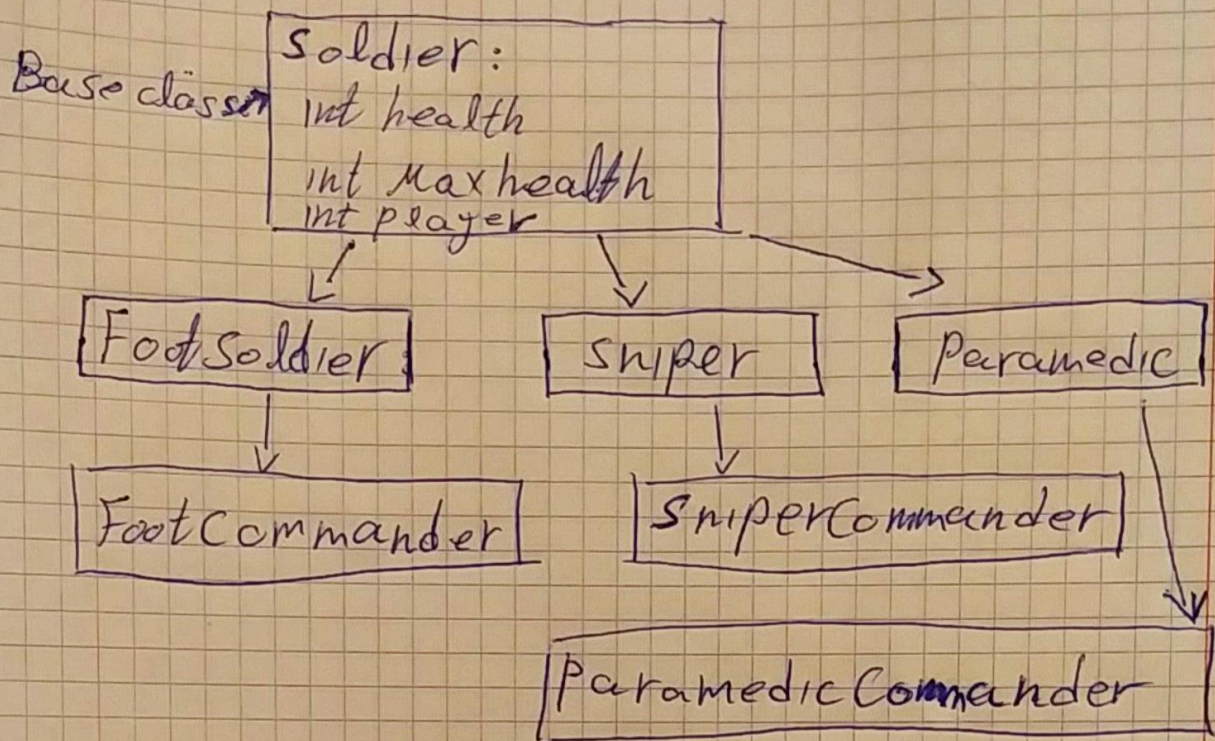 Soldier:
Base class
int health
int Maxhealth
int player
FootSoldier
Sniper
Paramedic
FootCommander
SniperCommander
ParamedicCommander